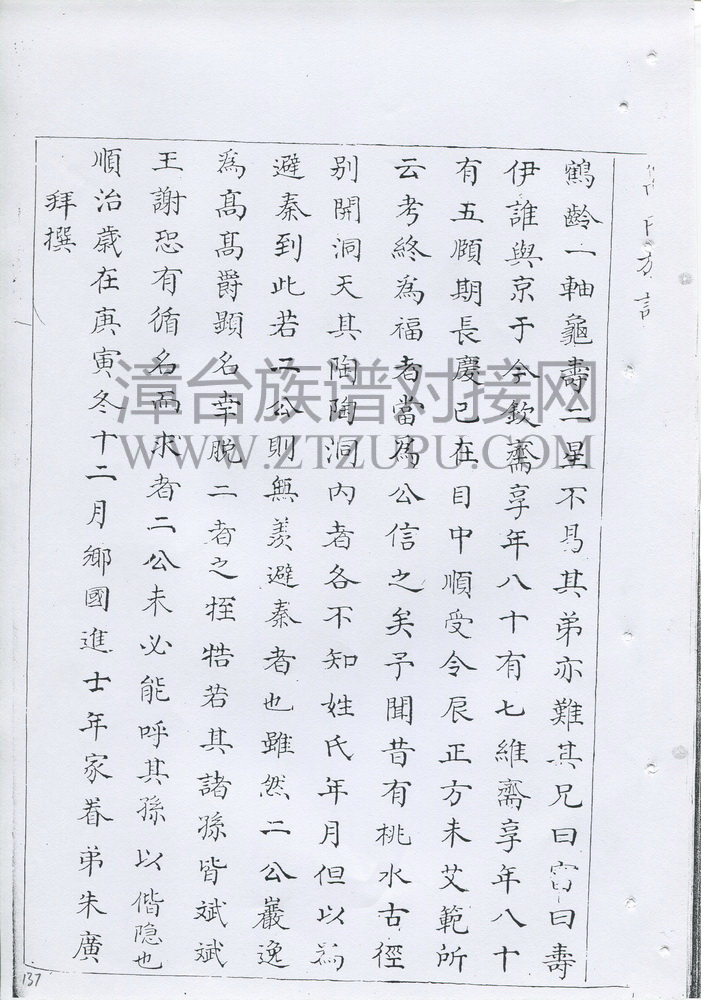 族
鶴齡一軸龜壽二星不易其弟亦難其兄曰富曰壽
伊誰與京于今欽齋享年八十有七維齋享年八十
有五頤期長慶已在目中順受令辰正方未艾範所
云考終為福者當為公信之矣予聞昔有桃水古徑
別開洞天其陶陶洞內者各不知姓氏年月但以為
避秦到此若二公則無羨避秦者也雖然二公巖逸
為高高爵顯名幸脫二者之桎梏若其諸孫皆斌斌
王謝恐有循名而求者二公未必能呼其孫以偕隐也
順治歲在庚寅冬十二月鄉國進士年家眷弟朱廣
拜撰
137
漳台族谱对接网
WWW.ZTZUPU.COM